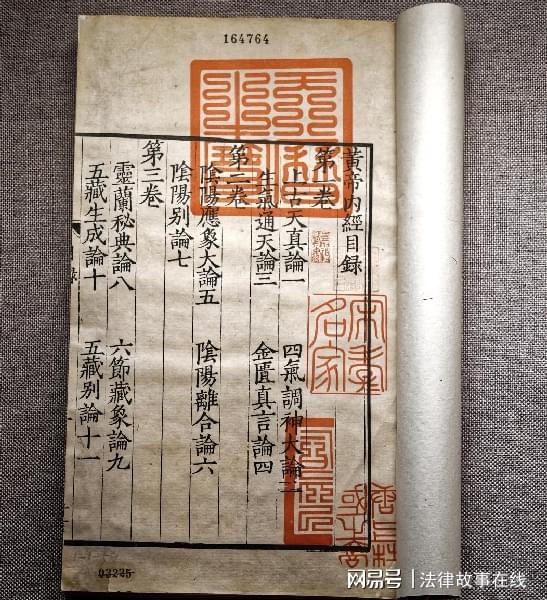 164764
黃帝內經目録
第一卷
上古天真論一 四氣調神大論二
生氣通天論三 金匱真言論四
第二卷
陰陽應象大論五 陰陽離合論六
陰陽别論七
第三卷
靈蘭秘典論八 六節藏象論九
五藏生成論十 五藏别論十一
03235
網易号 | 法律故事在线